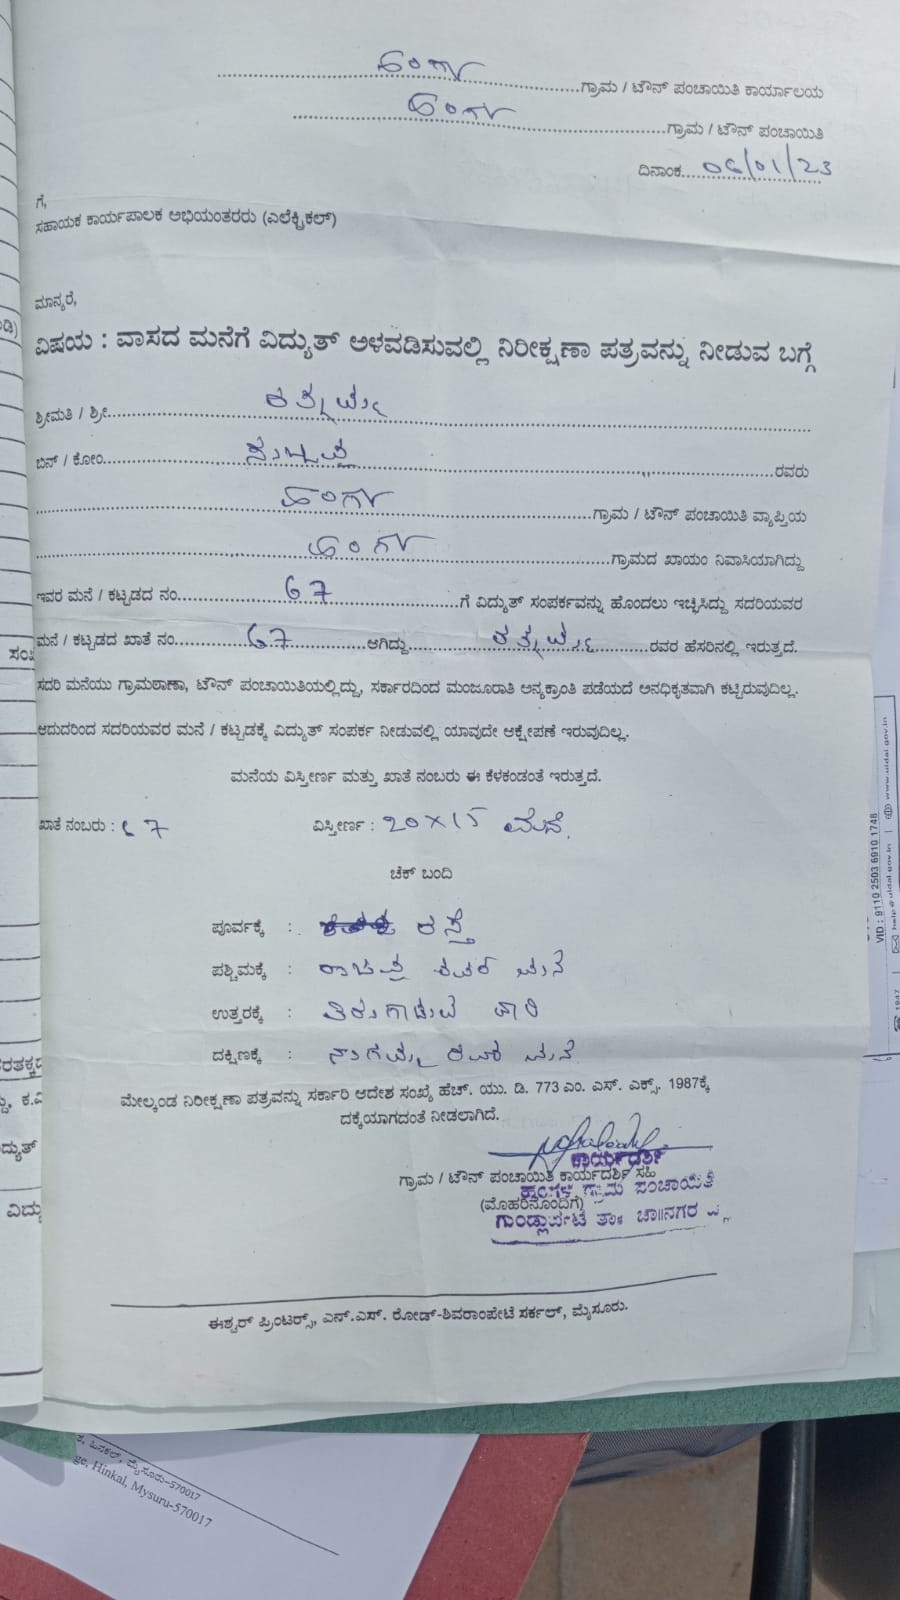 ಹಂಗಳ ಗ್ರಾಮ / ಟೌನ್ ಪಂಚಾಯಿತಿ ಕಾರ್ಯಾಲಯ
ಹಂಗಳ ಗ್ರಾಮ / ಟೌನ್ ಪಂಚಾಯಿತಿ
ದಿನಾಂಕ 06/01/23
ಗೆ,
ಸಹಾಯಕ ಕಾರ್ಯಪಾಲಕ ಅಭಿಯಂತರರು (ಎಲೆಕ್ಟ್ರಿಕಲ್)
ಮಾನ್ಯರೆ,
ವಿಷಯ : ವಾಸದ ಮನೆಗೆ ವಿದ್ಯುತ್ ಅಳವಡಿಸುವಲ್ಲಿ ನಿರೀಕ್ಷಣಾ ಪತ್ರವನ್ನು ನೀಡುವ ಬಗ್ಗೆ
ಶ್ರೀಮತಿ / ಶ್ರೀ
ಬಿನ್ / ಕೋಂ ರವರು
ಹಂಗಳ ಗ್ರಾಮ / ಟೌನ್ ಪಂಚಾಯಿತಿ ವ್ಯಾಪ್ತಿಯ
ಹಂಗಳ ಗ್ರಾಮದ ಖಾಯಂ ನಿವಾಸಿಯಾಗಿದ್ದು
ಇವರ ಮನೆ / ಕಟ್ಟಡದ ನಂ 67 ಗೆ ವಿದ್ಯುತ್ ಸಂಪರ್ಕವನ್ನು ಹೊಂದಲು ಇಚ್ಛಿಸಿದ್ದು ಸದರಿಯವರ
ಮನೆ / ಕಟ್ಟಡದ ಖಾತೆ ನಂ 67 ಆಗಿದ್ದು ರವರ ಹೆಸರಿನಲ್ಲಿ ಇರುತ್ತದೆ.
ಸದರಿ ಮನೆಯು ಗ್ರಾಮಠಾಣಾ, ಟೌನ್ ಪಂಚಾಯಿತಿಯಲ್ಲಿದ್ದು, ಸರ್ಕಾರದಿಂದ ಮಂಜೂರಾತಿ ಅನ್ಯಕ್ರಾಂತಿ ಪಡೆಯದೆ ಅನಧಿಕೃತವಾಗಿ ಕಟ್ಟಿರುವುದಿಲ್ಲ.
ಆದುದರಿಂದ ಸದರಿಯವರ ಮನೆ / ಕಟ್ಟಡಕ್ಕೆ ವಿದ್ಯುತ್ ಸಂಪರ್ಕ ನೀಡುವಲ್ಲಿ ಯಾವುದೇ ಆಕ್ಷೇಪಣೆ ಇರುವುದಿಲ್ಲ.
ಮನೆಯ ವಿಸ್ತೀರ್ಣ ಮತ್ತು ಖಾತೆ ನಂಬರು ಈ ಕೆಳಕಂಡಂತೆ ಇರುತ್ತದೆ.
ಖಾತೆ ನಂಬರು : 67 ವಿಸ್ತೀರ್ಣ : 20 x 15
ಚೆಕ್ ಬಂದಿ
ಪೂರ್ವಕ್ಕೆ : ರಸ್ತೆ
ಪಶ್ಚಿಮಕ್ಕೆ : ರಾಚಪ್ಪ ರವರ ಮನೆ
ಉತ್ತರಕ್ಕೆ :
ದಕ್ಷಿಣಕ್ಕೆ : ರವರ ಮನೆ
ಮೇಲ್ಕಂಡ ನಿರೀಕ್ಷಣಾ ಪತ್ರವನ್ನು ಸರ್ಕಾರಿ ಆದೇಶ ಸಂಖ್ಯೆ ಹೆಚ್. ಯು. ಡಿ. 773 ಎಂ. ಎಸ್. ಎಕ್ಸ್. 1987ಕ್ಕೆ
ದಕ್ಕೆಯಾಗದಂತೆ ನೀಡಲಾಗಿದೆ.
ಕಾರ್ಯದರ್ಶಿ
ಗ್ರಾಮ / ಟೌನ್ ಪಂಚಾಯಿತಿ ಕಾರ್ಯದರ್ಶಿ ಸಹಿ
ಹಂಗಳ ಗ್ರಾಮ ಪಂಚಾಯಿತಿ
(ಮೊಹರಿನೊಂದಿಗೆ)
ಗುಂಡ್ಲುಪೇಟೆ ತಾ॥ ಚಾ॥ನಗರ
ಈಶ್ವರ್ ಪ್ರಿಂಟರ್ಸ್, ಎನ್.ಎಸ್. ರೋಡ್-ಶಿವರಾಂಪೇಟೆ ಸರ್ಕಲ್, ಮೈಸೂರು.
VID : 9110 2503 6910 1748
1947 | help@uidai.gov.in | www.uidai.gov.in
ಮೈಸೂರು-570017
ge, Hinkal, Mysuru-570017